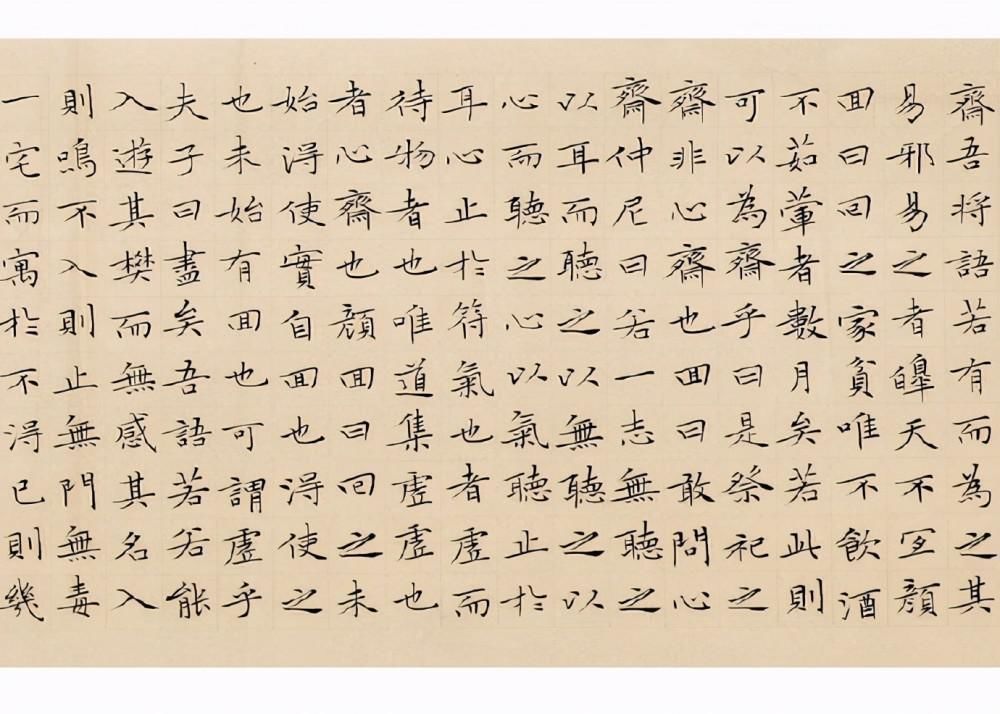 齋吾將語若有而為之其
易邪易之者皞天不宜顏
回曰回之家貧唯不飲酒
不茹葷者數月矣若此則
可以為齋乎曰是祭祀之
齋非心齋也回曰敢問心
齋仲尼曰若一志無聽之
以耳而聽之以無聽之以
心而聽之心以氣聽止於
耳心止於符氣也者虛而
待物者也唯道集虛虛也
者心齋也顏回曰回之未
始得使實自回也得使之
也未始有回也可謂虛乎
夫子曰盡矣吾語若若能
入遊其樊而無感其名入
則鳴不入則止無門無毒
一宅而寓於不得已則幾